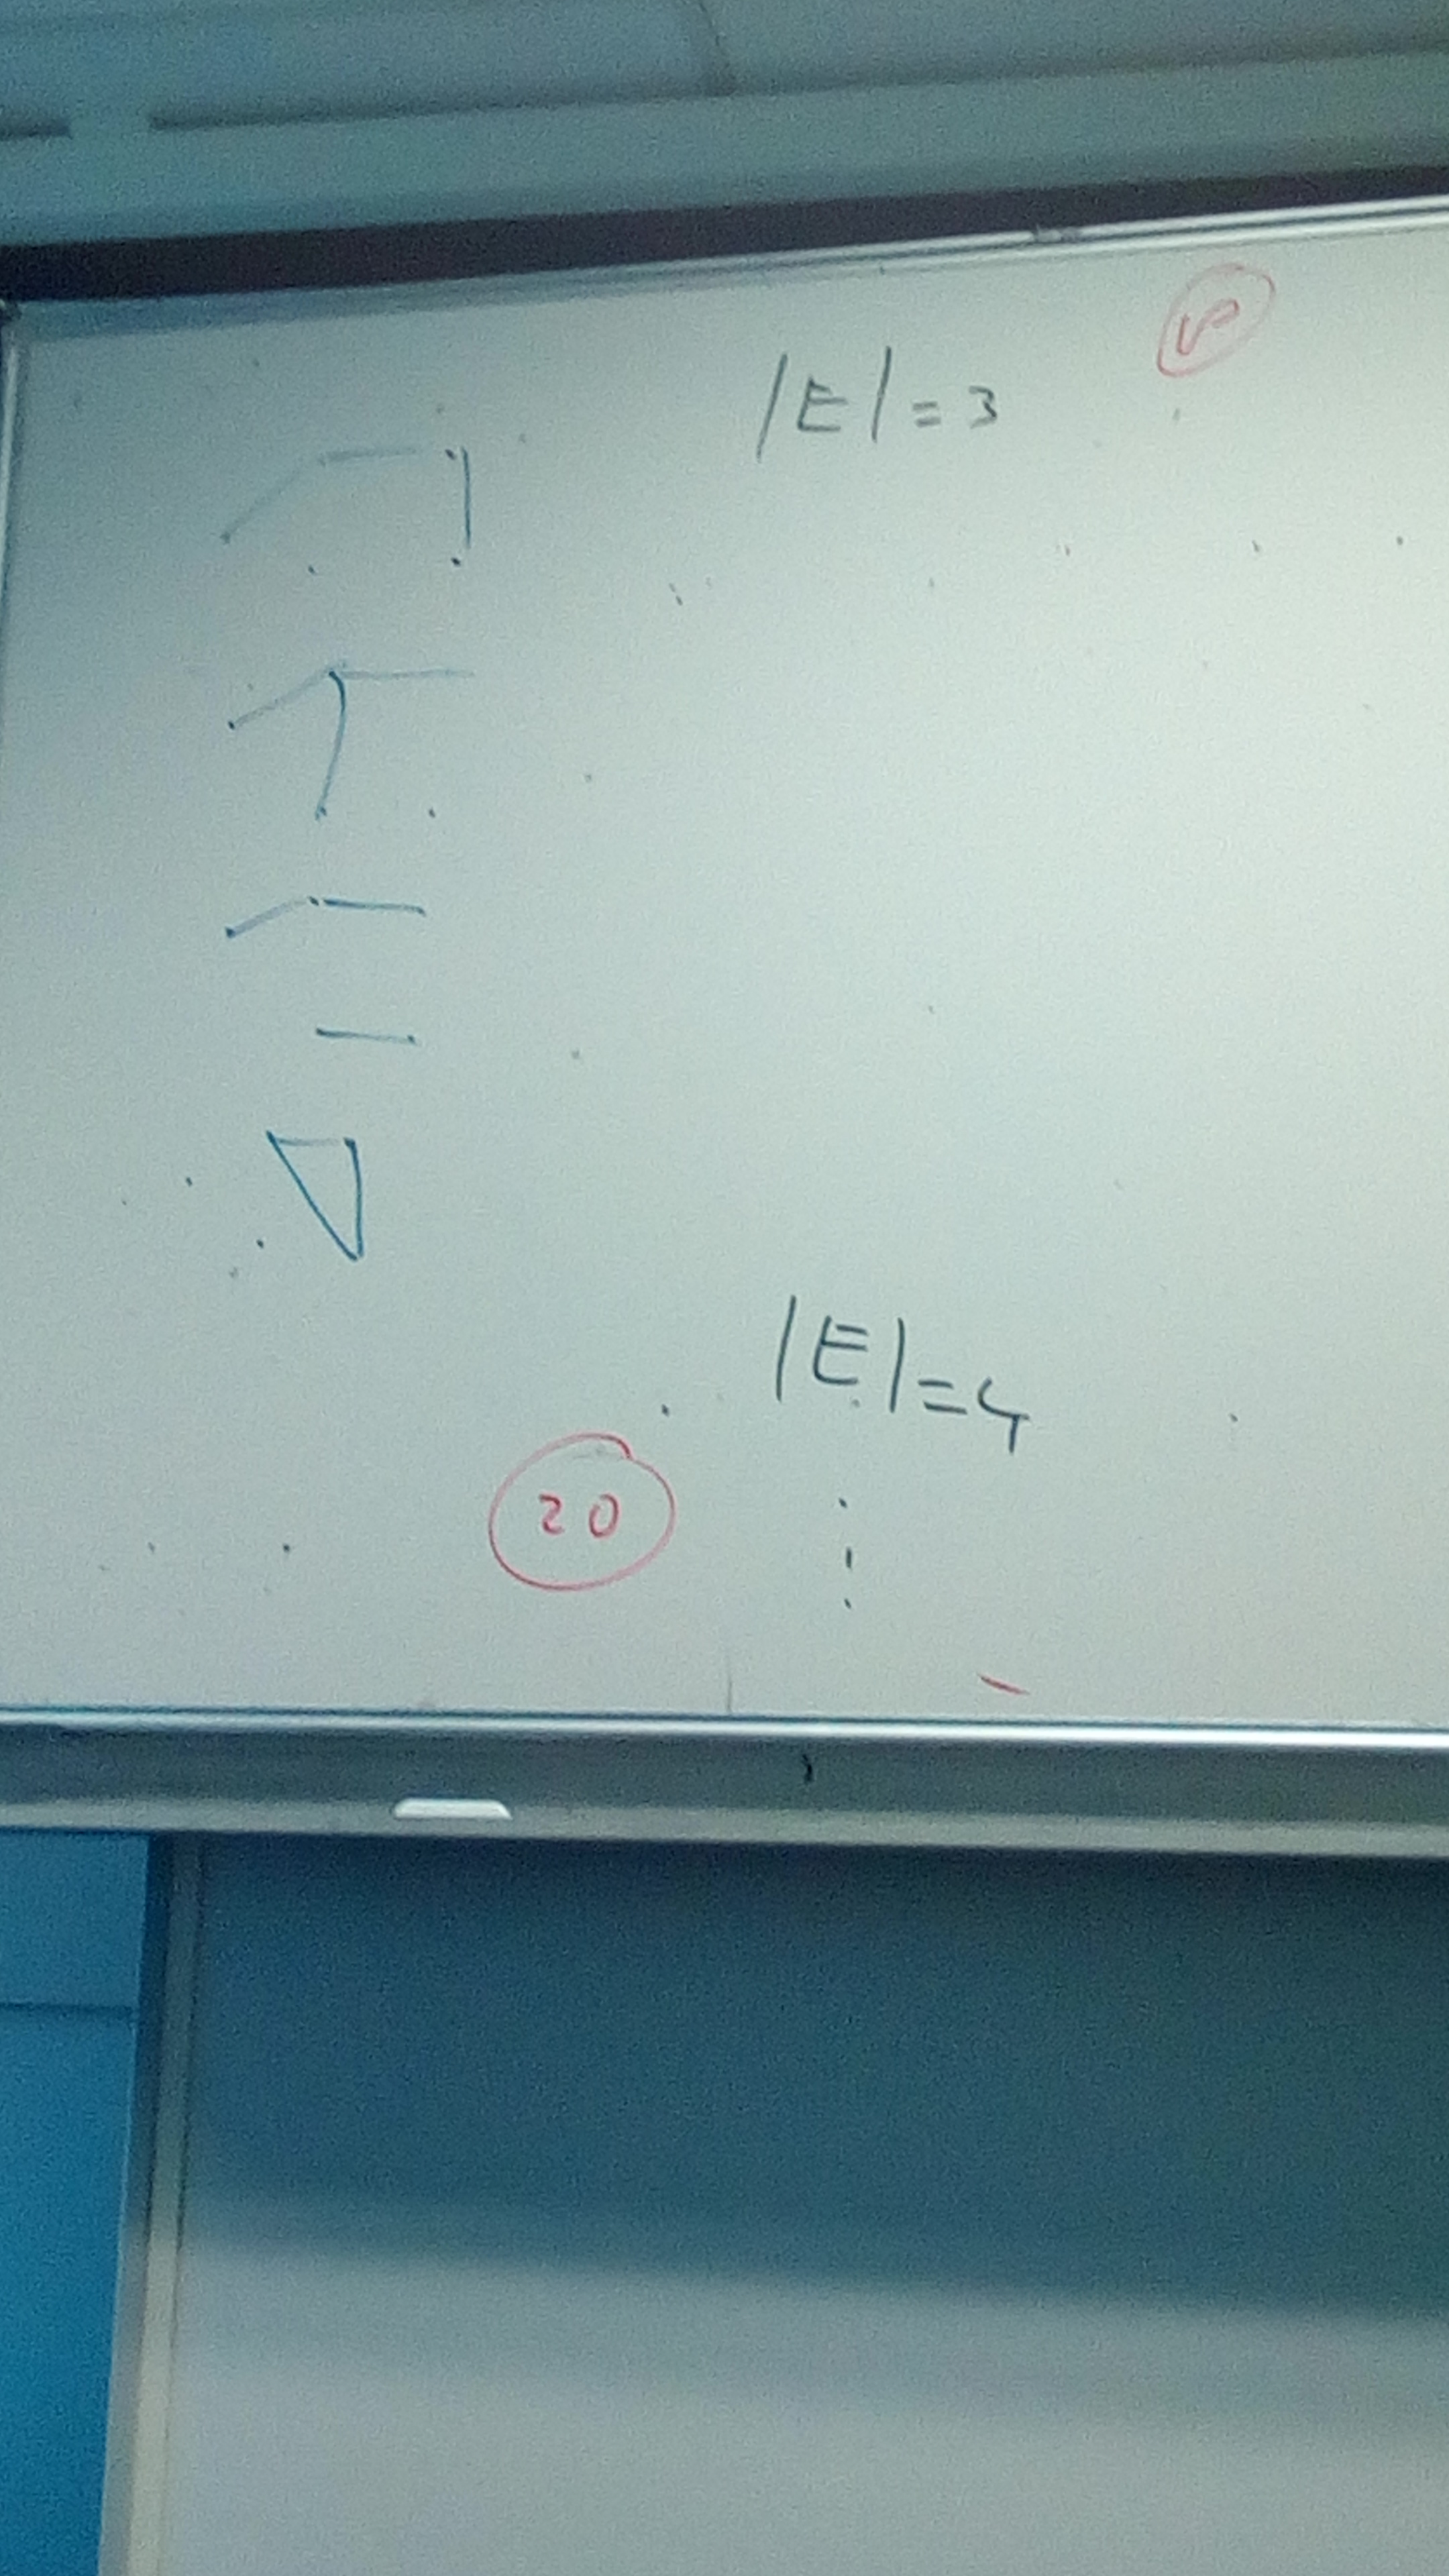 |E| = 3
|E| = 4
20
⋮